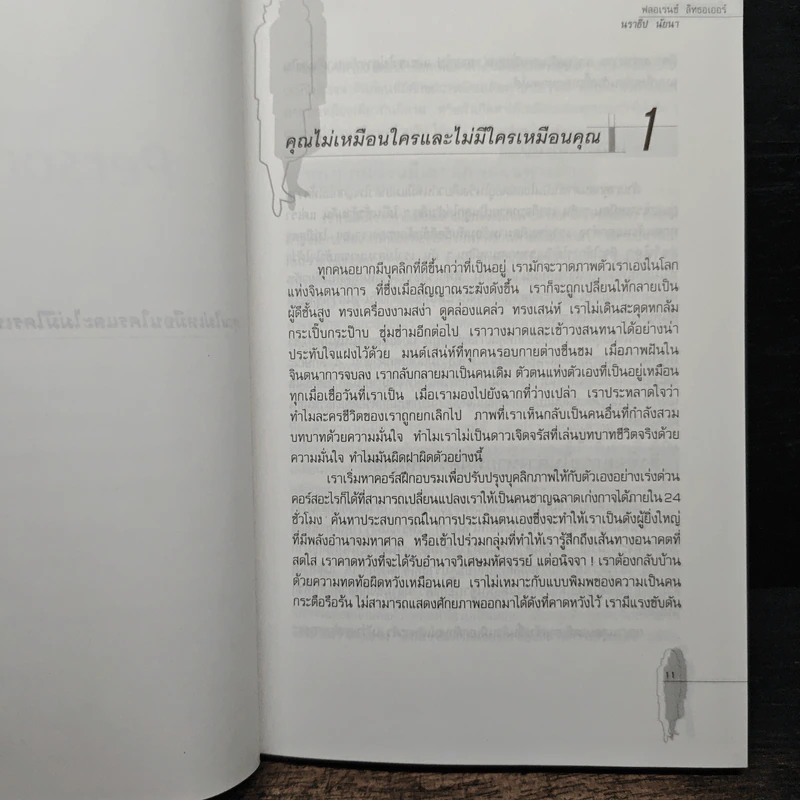 ฟลอเรนซ์ ลิทธอเออร์
นราธิป นัยนา
คุณไม่เหมือนใครและไม่มีใครเหมือนคุณ 1
ทุกคนอยากมีบุคลิกที่ดีขึ้นกว่าที่เป็นอยู่ เรามักจะวาดภาพตัวเราเองในโลก
แห่งจินตนาการ ที่ซึ่งเมื่อสัญญาณระฆังดังขึ้น เราก็จะถูกเปลี่ยนให้กลายเป็น
ผู้ดีชั้นสูง ทรงเครื่องงามสง่า ดูคล่องแคล่ว ทรงเสน่ห์ เราไม่เดินสะดุดหกล้ม
กระเปิ๊บกระป๊าบ ซุ่มซ่ามอีกต่อไป เราวางมาดและเข้าวงสนทนาได้อย่างน่า
ประทับใจแฝงไว้ด้วย มนต์เสน่ห์ที่ทุกคนรอบกายต่างชื่นชม เมื่อภาพฝันใน
จินตนาการจบลง เรากลับกลายมาเป็นคนเดิม ตัวตนแห่งตัวเองที่เป็นอยู่เหมือน
ทุกเมื่อเชื่อวันที่เราเป็น เมื่อเรามองไปยังฉากที่ว่างเปล่า เราประหลาดใจว่า
ทำไมละครชีวิตของเราถูกยกเลิกไป ภาพที่เราเห็นกลับเป็นคนอื่นที่กำลังสวม
บทบาทด้วยความมั่นใจ ทำไมเราไม่เป็นดาวเจิดจรัสที่เล่นบทบาทชีวิตจริงด้วย
ความมั่นใจ ทำไมมันผิดฝาผิดตัวอย่างนี้
เราเริ่มหาคอร์สฝึกอบรมเพื่อปรับปรุงบุคลิกภาพให้กับตัวเองอย่างเร่งด่วน
คอร์สอะไรก็ได้ที่สามารถเปลี่ยนแปลงเราให้เป็นคนชาญฉลาดเก่งกาจได้ภายใน 24
ชั่วโมง ค้นหาประสบการณ์ในการประเมินตนเองซึ่งจะทำให้เราเป็นดังผู้ยิ่งใหญ่
ที่มีพลังอำนาจมหาศาล หรือเข้าไปร่วมกลุ่มที่ทำให้เรารู้สึกถึงเส้นทางอนาคตที่
สดใส เราคาดหวังที่จะได้รับอำนาจวิเศษมหัศจรรย์ แต่อนิจจา ! เราต้องกลับบ้าน
ด้วยความทดท้อผิดหวังเหมือนเคย เราไม่เหมาะกับแบบพิมพของความเป็นคน
กระตือรือร้น ไม่สามารถแสดงศักยภาพออกมาได้ดังที่คาดหวังไว้ เรามีแรงขับดัน
11